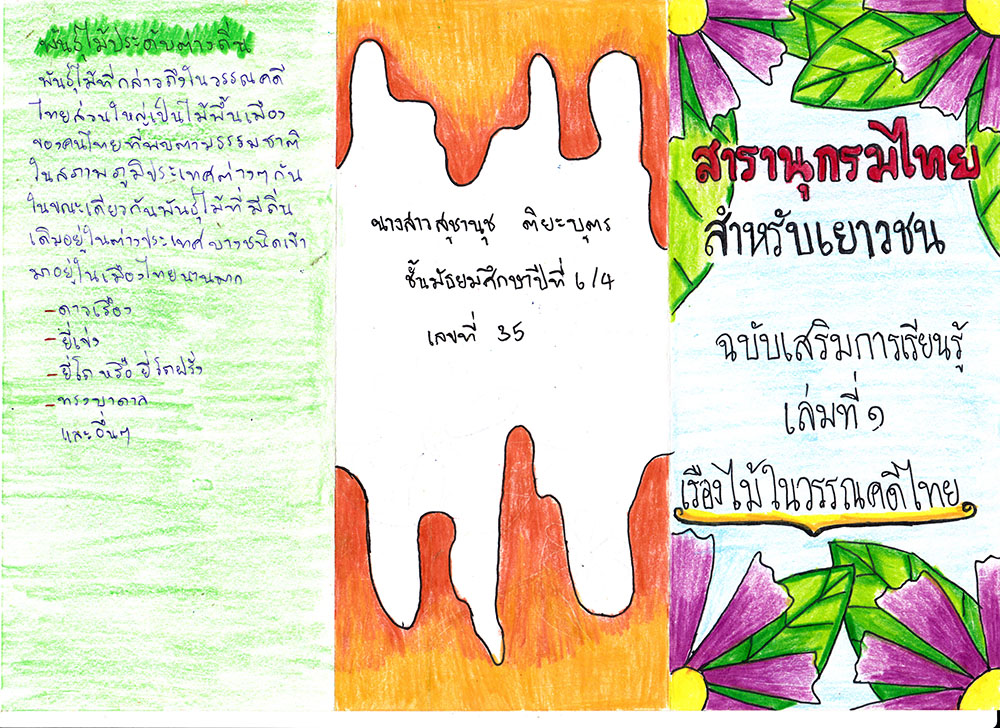 พันธุ์ไม้ประดับต่างถิ่น
พันธุ์ไม้ที่กล่าวถึงในวรรณคดี
ไทยส่วนใหญ่เป็นไม้พื้นเมือง
ของคนไทยที่พบตามธรรมชาติ
ในสภาพภูมิประเทศต่างๆกัน
ในขณะเดียวกันพันธุ์ไม้ที่มีถิ่น
เดิมอยู่ในต่างประเทศบางชนิดเข้า
มาอยู่ในเมืองไทยนานมาก
-ดาวเรือง
-ยี่เข่ง
-ยี่โถ หรือ ยี่โถฝรั่ง
-ทรงบาดาล
และอื่นๆ
นางสาวสุชานุช ติยะบุตร
ชั้นมัธยมศึกษาปีที่ 6/4
เลขที่ 35
สารานุกรมไทย
สำหรับเยาวชน
ฉบับเสริมการเรียนรู้
เล่มที่ ๑
เรื่องไม้ในวรรณคดีไทย